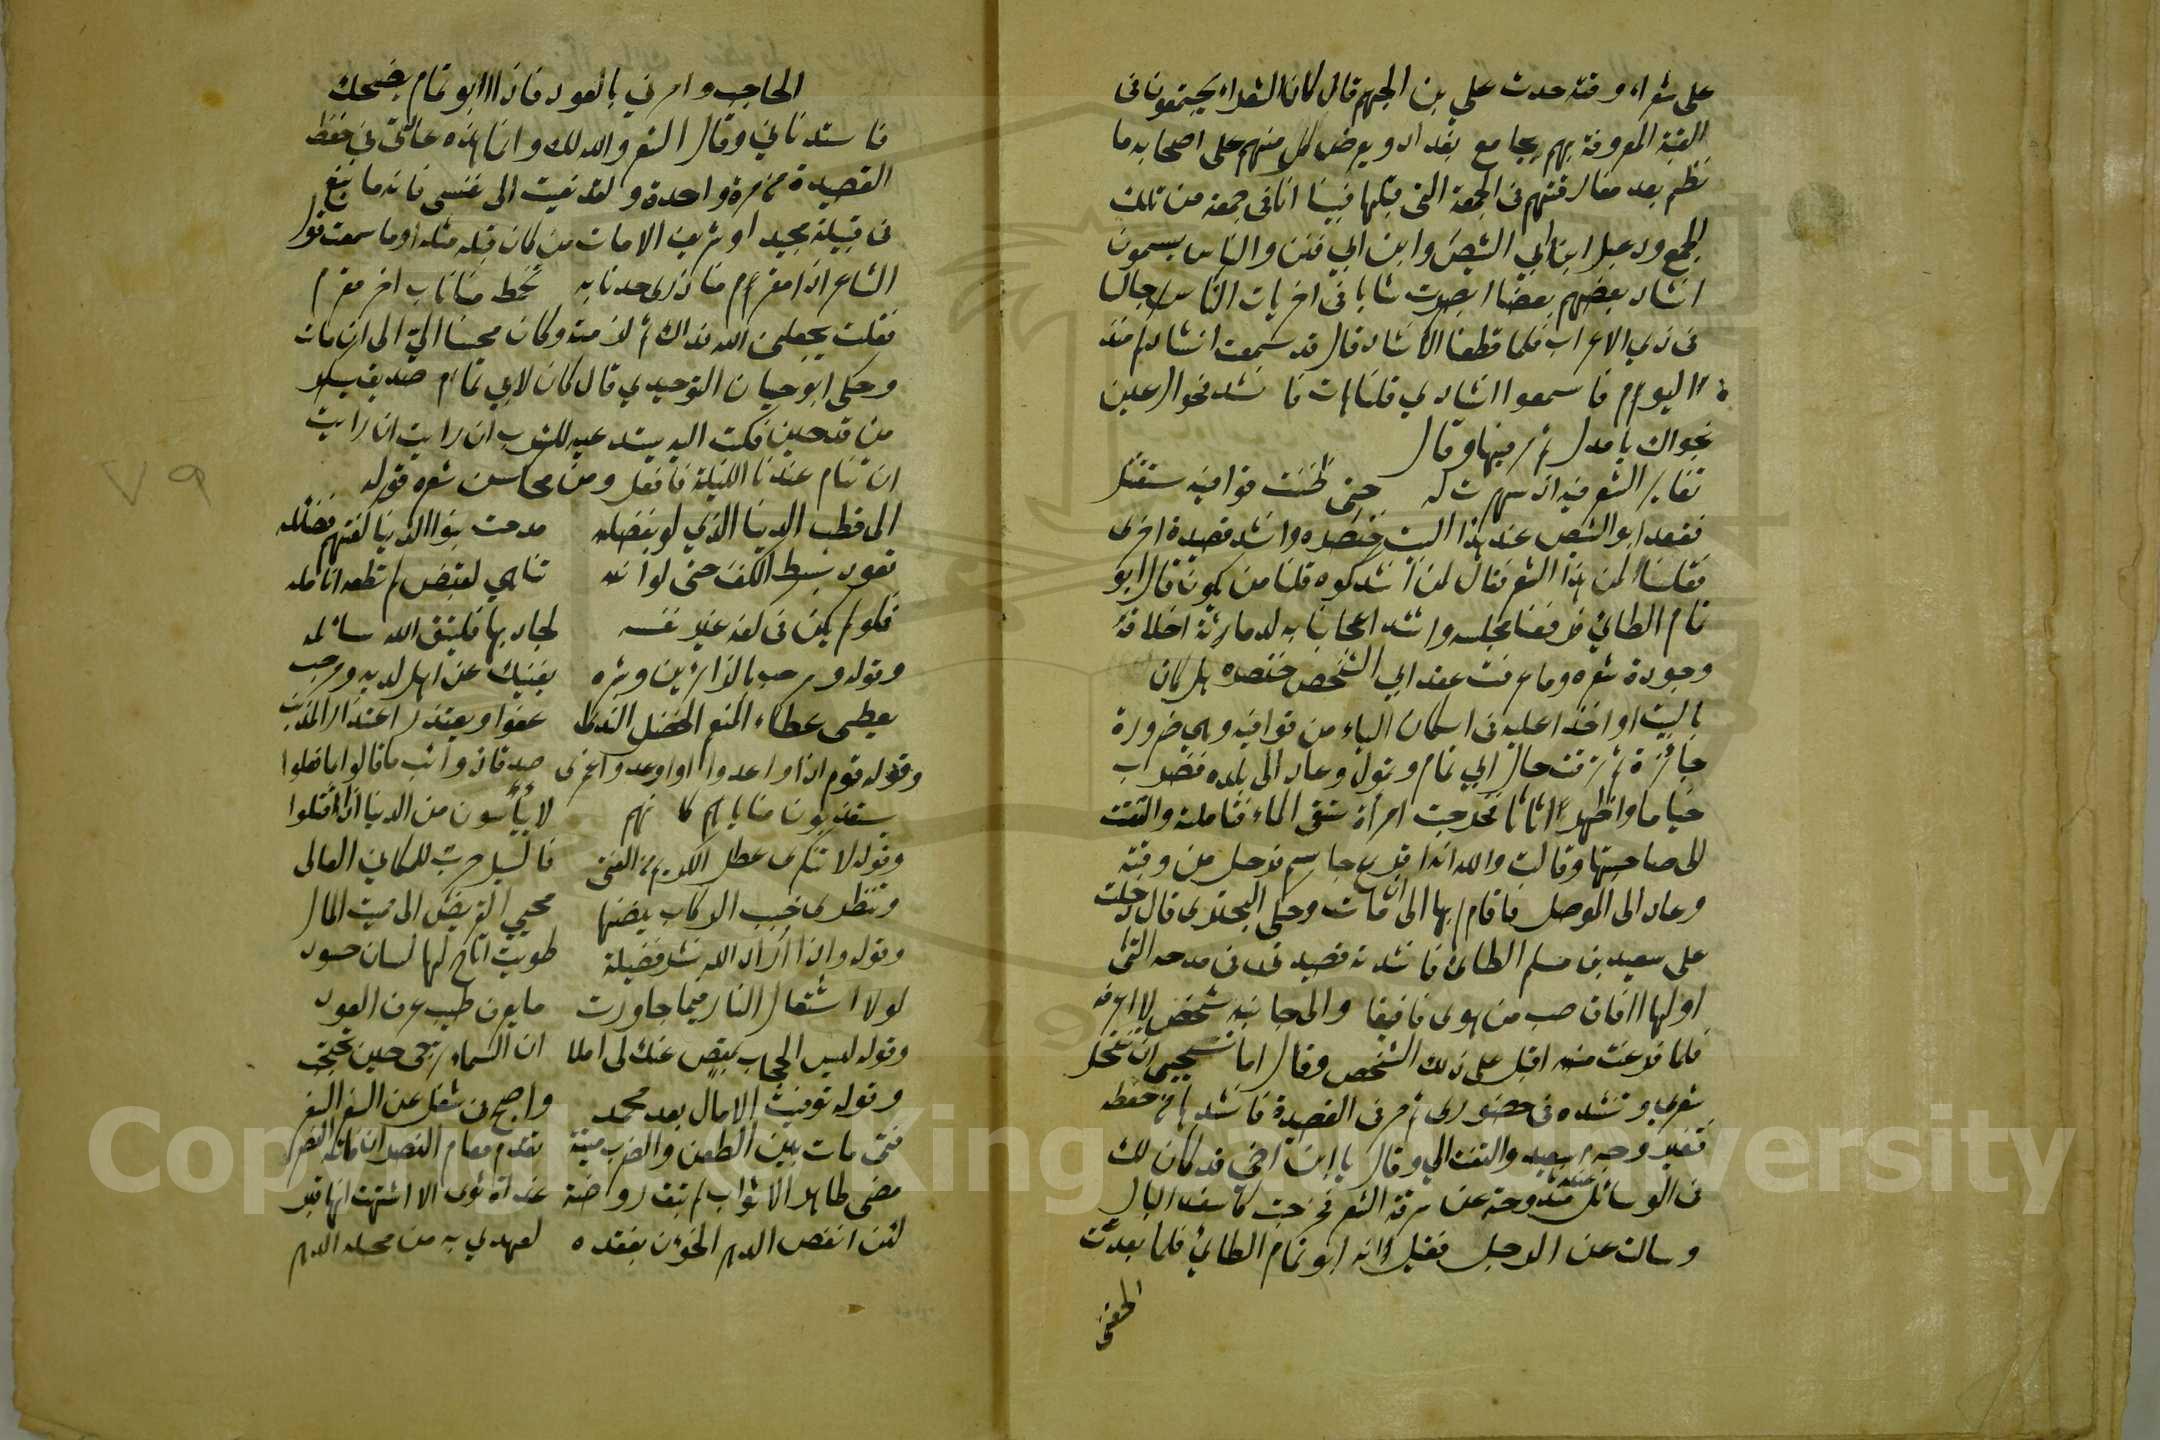 على شعراء وقته حدث علي بن الجهم قال كان الشعراء يجتمعون في
القبة المعروفة بهم بجامع بغداد ويعرض كل منهم على اصحابه ما
نظم بعد مفارقتهم في الجمعة التي قبلها فبينا انا في جمعة من تلك
الجمع ودعبل وابن ابي الشيص وابن ابي فنن والناس يسمعون
انشاد بعضهم بعضا ابصرت شابا في اخريات الناس جالسا
في زي الاعراب فلما قطعنا الانشاد قال قد سمعت انشادكم منذ
اليوم فاسمعوا انشادي قلنا هات فانشد فحوالر عين
نجواك يا مذل ثم مر فيها وقال
تغاير الشعر فيه اذ سهرت له حتى ظننت قوافيه ستقتتل
فعقد ابو الشيص عند هذا البيت خنصره وانشد قصيدة اخرى
فقلنا لمن هذا الشعر فقال لمن انشدكموه قلنا من تكون قال ابو
تمام الطائي فرفعنا مجلسه واشتد اعجابنا به لدماثة اخلاقه
وجودة شعره وما عرفت عقد ابي الشخص خنصره هل كان
بالبيت او اخذا عليه في اسكان الياء من قوافيه وهي ضرورة
جائزة ثم ترقت حال ابي تمام وتمول وعاد الى بلده فضرب
خياما واظهر اثاثا فخرجت امرأة تستقي الماء فتاملته والتفتت
الى صاحبتها وقالت والله انه اقرع جاسم فرحل من وقته
وعاد الى الموصل فاقام بها الى ان مات وحكى البحتري قال دخلت
على سعيد بن مسلم الطائي فانشدته قصيدتي في مدحه التي
اولها اافاق صب من هوى فافيقا والى جانبه شخص لا اعرفه
فلما فرغت منه اقبل على ذلك الشخص وقال اما تستحيي ان تنتحل
شعري وتنشده في حضوري ثم مر في القصيدة فانشدها من حفظه
فتغير وجه سعيد والتفت الي وقال يا ابن اخي قد كان لك
في الوسائل مندوحة عن سرقة الشعر فخرجت كاسف البال
وسالت عن الرجل فقيل انه ابو تمام الطائي فلما بعدت
الحقني
الحاجب وامرني بالعود فاذا ابو تمام يضحك
فاستدناني وقال الشعر والله لك وانا هذه عادتي في حفظ
القصيدة من مرة واحدة ولقد نعيت الى نفسي فانه ما نبغ
في قبيلة مجيد او شريف الا مات من كان قبله مثله اوما سمعت قول
الشاعر اذا مقرم منا ذرى حد نابه تخمط منا ناب اخر مقرم
فقلت يجعلني الله فداك ثم لازمته وكان محسنا الي الى ان مات
وحكى ابو حيان التوحيدي قال كان لابي تمام صديق يسكر
من قدحين فكتب اليه يستدعيه للشرب ان رايت ان رايت
ان تنام عندنا الليلة فافعل ومن محاسن شعره قوله
الى قطب الدنيا الذي لو بفضله مدحت بنو الدنيا كفتهم فضائله
تعود بسط الكف حتى لو انه ثناها لقبض لم تطعه انامله
فلو لم يكن في كفه غير نفسه لجاد بها فليتق الله سائله
وقوله ومرحب بالزائرين وبشره يغنيك عن اهل لديه ومرحب
يعطي عطاء المنعم الخضل الندى عفوا ويعتذر اعتذار المذنب
وقوله قوم اذا وعدوا او اوعدوا غمرى صدقا ذوائب ما قالوا بما فعلوا
يستعذبون مناياهم كانهم لا ييأسون من الدنيا اذا قتلوا
وقوله لا تنكري عطل الكريم من الغنى فالسيل حرب للمكان العالي
وتنظري خبب الركاب ينصها محيي القريض الى مميت المال
وقوله واذا اراد الله نشر فضيلة طويت اتاح لها لسان حسود
لولا اشتعال النار فيما جاورت ما يعرف طيب عرف العود
وقوله ليس الحجاب بمقص عنك لي املا ان السماء ترجى حين تحتجب
وقوله توفيت الامال بعد محمد واصبح في شغل عن السفر السفر
فتى مات بين الطعن والضرب ميتة تقوم مقام النصر ان فاته النصر
مضى طاهر الاثواب لم تبق روضة غداة ثوى الا اشتهت انها قبر
لئن انغص الدهر الخؤون بفقده لعهدي به ممن محبه الدهر
٧٩
Copyright © King Saud University